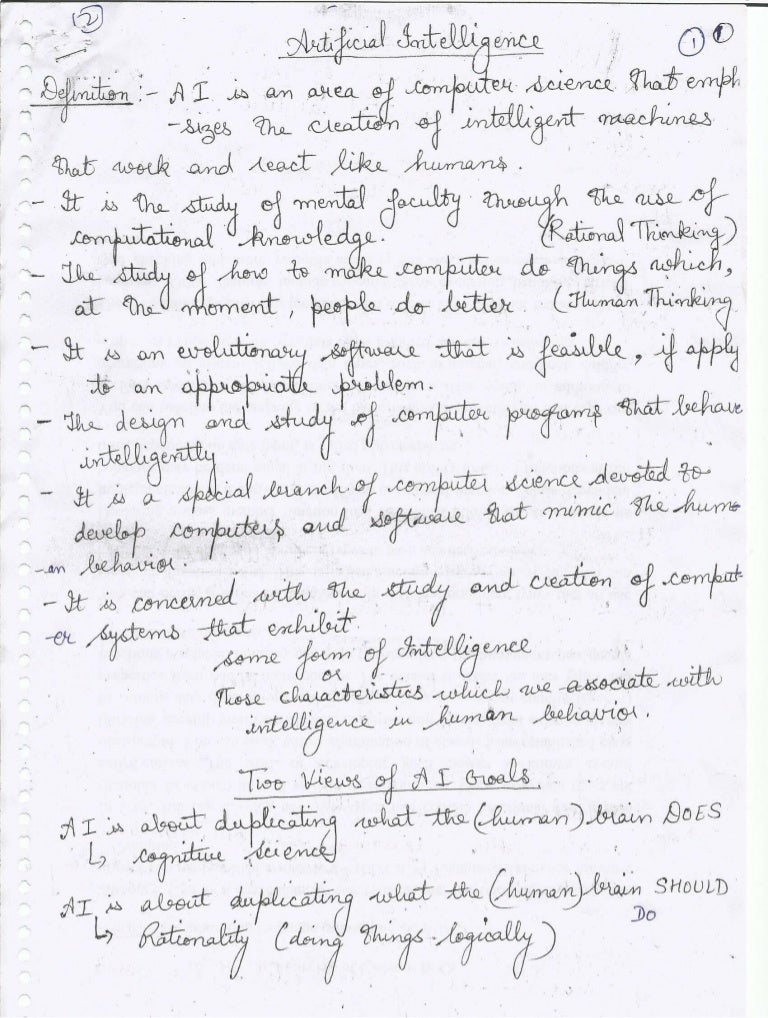 12
Artificial Intelligence
1 1
Definition :- AI is an area of computer science that emph
-sizes the creation of intelligent machines
that work and react like humans.
- It is the study of mental faculty through the use of
computational knowledge. (Rational Thinking)
- The study of how to make computer do things which,
at the moment, people do better. (Human Thinking
- It is an evolutionary software that is feasible, if apply
to an appropriate problem.
- The design and study of computer programs that behave
intelligently
- It is a special branch of computer science devoted to
develop computers and software that mimic the hum-
-an behavior.
- It is concerned with the study and creation of comput-
-er systems that exhibit
some form of Intelligence
or
Those characteristics which we associate with
intelligence in human behavior.
Two Views of AI Goals.
AI is about duplicating what the (human) brain DOES
↳ cognitive science
AI is about duplicating what the (human) brain SHOULD
DO
↳ Rationality (doing things logically)